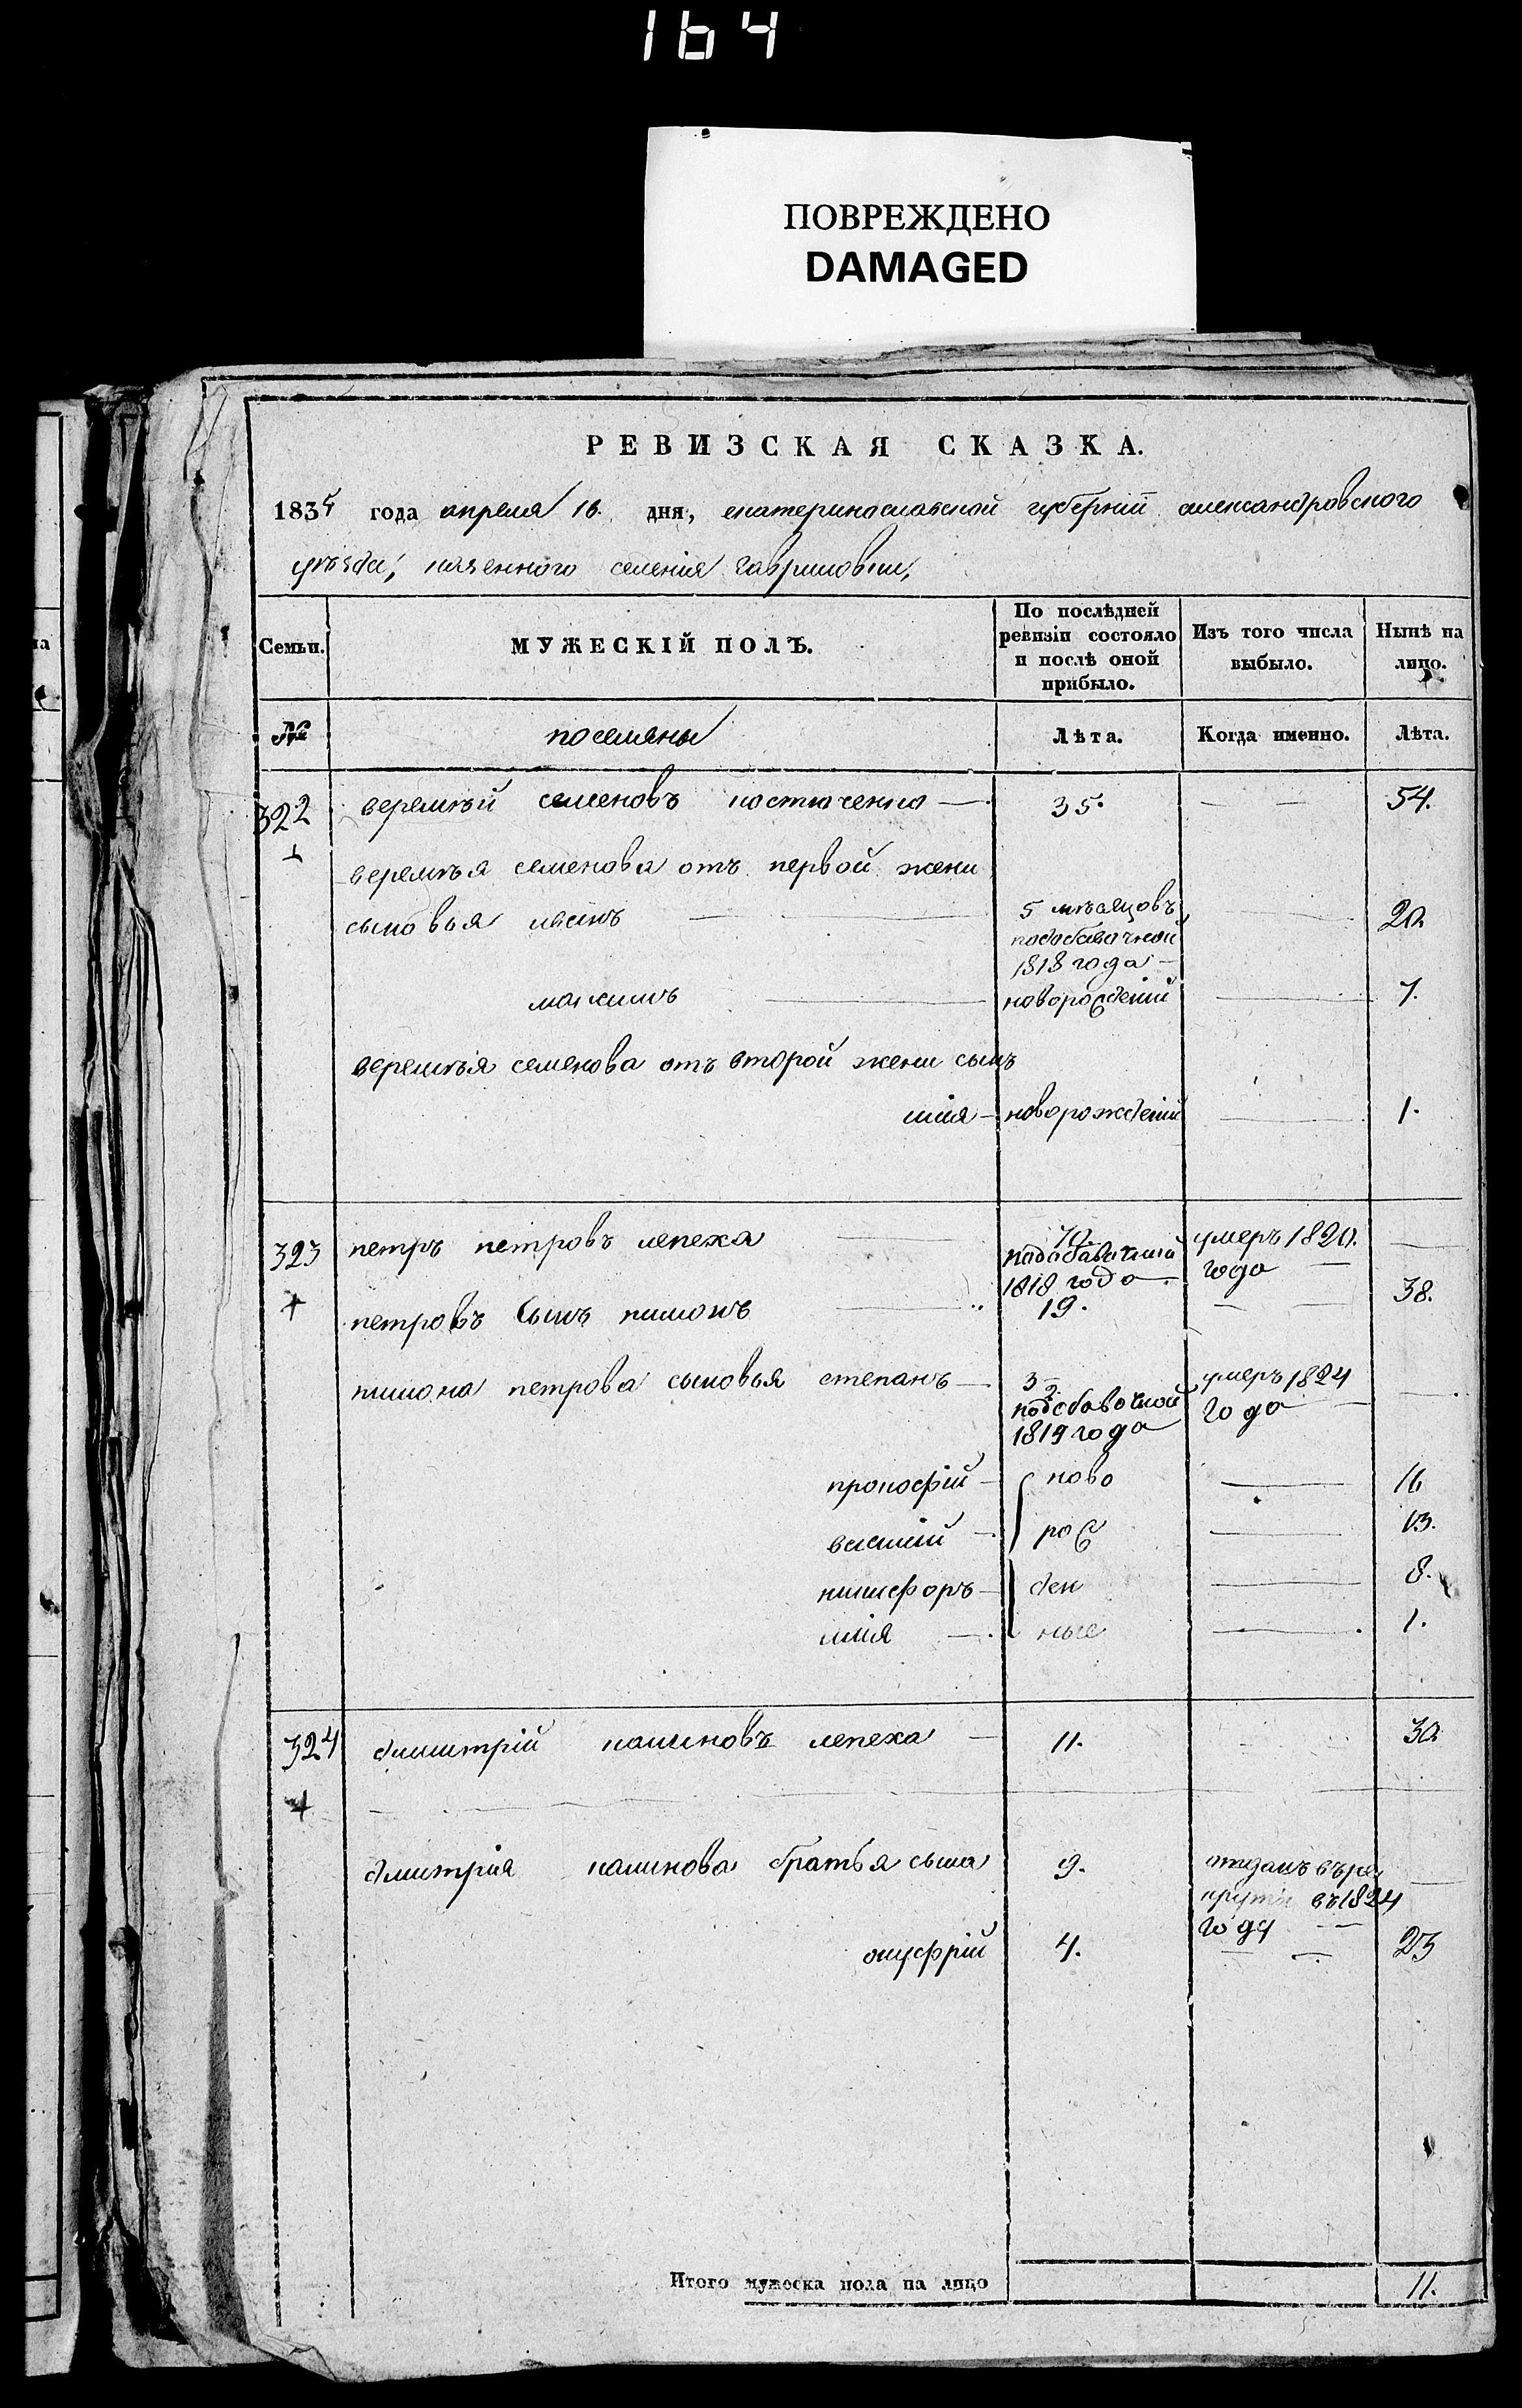 164
ПОВРЕЖДЕНО
DAMAGED
РЕВИЗСКАЯ СКАЗКА.
1835 года апреля 16. дня, екатеринославской губернии александровского
уѣзда, казенного селения гавриловки,
Семьи.
МУЖЕСКІЙ ПОЛЪ.
По послѣдней ревизіи состояло и послѣ оной прибыло.
Изъ того числа выбыло.
Нынѣ на лицо.
№
поселяны
Лѣта.
Когда именно.
Лѣта.
322 веремѣй семеновъ костюченко — 35. — — 54.
веремѣя семенова отъ первой жени
сыновья иванъ — 5 мѣсяцовъ подобавочной 1818 года — 20
максимъ — новорожденій — 7.
веремѣя семенова отъ второй жени сынъ
илія — новорожденій — 1.
323 петръ петровъ лепеха — 70. подобавочной 1818 года — умеръ 1820. года —
петровъ сынъ пимонъ — 19. — — 38.
пимона петрова сыновья степанъ — 3 подобавочной 1819 года умеръ 1824 года —
прокофій — ново — 16
василій — рож — 13.
никифоръ — ден — 8.
илія — ные — 1.
324 димитрій калиновъ лепеха — 11. — — 30
димитрія калинова братья сыма 9. отданъ въ ре
крути въ 1824
году —
онуфрій 4. — — 23
Итого мужеска пола на лицо 11.